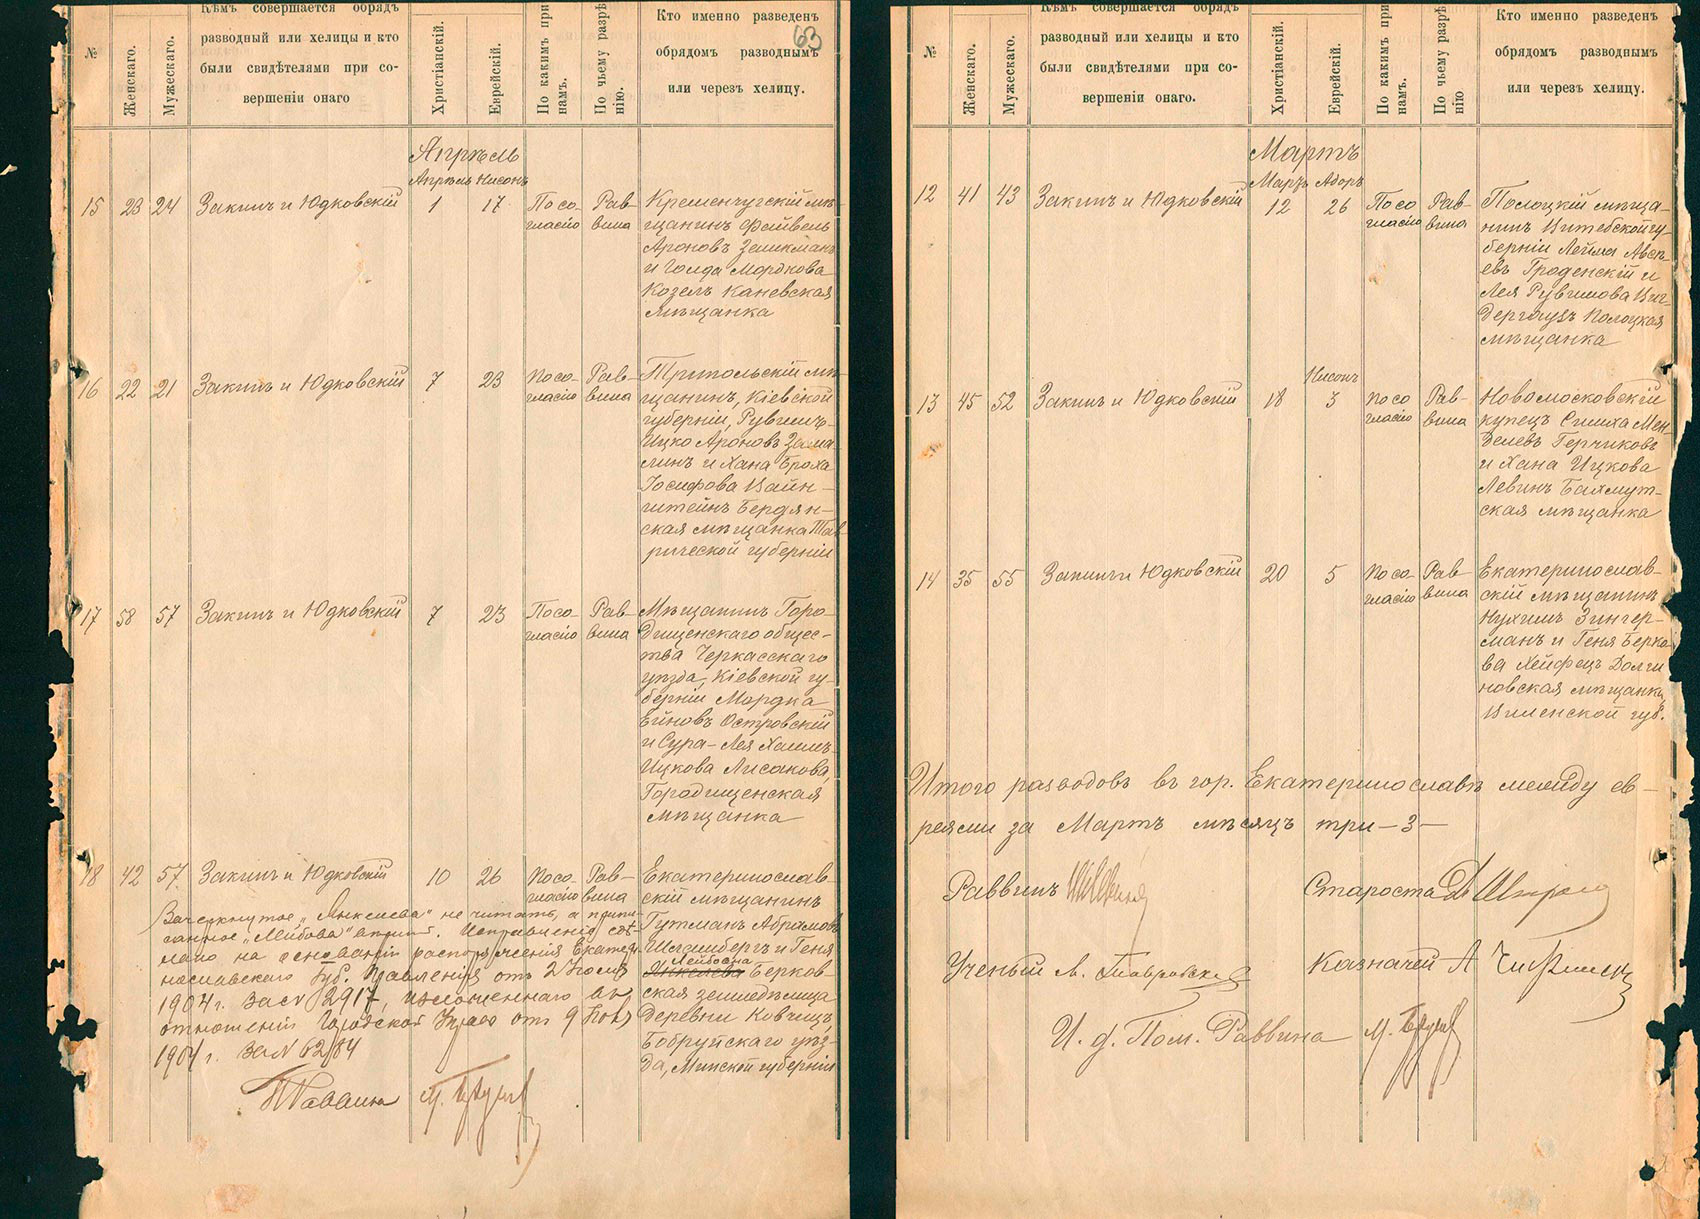 63
№
Женскаго.
Мужескаго.
Кѣмъ совершается обрядъ
разводный или хелицы и кто
были свидѣтелями при со-
вершеніи онаго
Христіанскій.
Еврейскій.
По какимъ при
намъ.
По чьему разрѣ
нію.
Кто именно разведенъ
обрядомъ разводнымъ
или черезъ хелицу.
Апрѣль
Апрѣль Нисонъ
15 23 24 Закинъ и Юдковскій 1 17 По со-гласію Рав-вина
Кременчугскій мѣ-
щанинъ Файвель
Ароновъ Зеликманъ
и Голда Мордкова
Козелъ Каневская
мѣщанка
16 22 21 Закинъ и Юдковскій 7 23 По со-гласію Рав-вина
Трипольскій мѣ-
щанинъ, Кіевской
губерніи, Рувинъ-
Ицко Ароновъ Зама
линъ и Хана Броха
Іосифова Вайн-
штейнъ Бердян-
ская мѣщанка Тав-
рической губерніи
17 58 57 Закинъ и Юдковскій 7 23 По со-гласію Рав-вина
Мѣщанинъ Горо-
дищенскаго общес-
тва Черкасскаго
уѣзда, Кіевской гу-
берніи Мордка
Ейновъ Островскій
и Сура-Лея Хаимъ-
Ицкова Лисакова,
Городищенская
мѣщанка
18 42 57 Закинъ и Юдковскій 10 26 По со-гласію Рав-вина
Екатеринослав-
скій мѣщанинъ
Гутманъ Абрамовъ
Шламбергъ и Геня
Лейбова
Янкелева Берков-
ская земледѣлица
деревни Ковчицъ,
Бобруйскаго уѣз-
да, Минской губерніи
Зачеркнутое „Янкелева" не читать, а припи-
санное „Лейбова" вѣрно. Исправленіе сдѣ-
лано на основаніи распоряженія Екатери-
нославскаго Губ. Правленія отъ 2 Іюля
1904 г. за № 2917, изложеннаго въ
отношеніи Городской Управы отъ 9 Іюля
1904 г. за № 6284
Раввинъ
№
Женскаго.
Мужескаго.
Кѣмъ совершается обрядъ
разводный или хелицы и кто
были свидѣтелями при со-
вершеніи онаго.
Христіанскій.
Еврейскій.
По какимъ при
намъ.
По чьему разрѣ
нію
Кто именно разведенъ
обрядомъ разводнымъ
или черезъ хелицу.
Мартъ
Мартъ Адоръ
12 41 43 Закинъ и Юдковскій 12 26 По со гласію Рав-вина
Полоцкій мѣща-
нинъ Витебской гу-
берніи Лейма Авсѣ-
евъ Гроденскій и
Лея Рувимова Виг-
дергаузъ Полоцкая
мѣщанка
Нисонъ
13 45 52 Закинъ и Юдковскій 18 3 По со гласію Рав-вина
Новомосковскій
купецъ Симха Мен-
делевъ Герчиковъ
и Хана Ицкова
Левинъ Бахмут-
ская мѣщанка
14 35 55 Закинъ и Юдковскій 20 5 По со-гласію Рав-вина
Екатеринослав-
скій мѣщанинъ
Нухимъ Зингер-
манъ и Геня Берко-
ва Хейфецъ Долги
новская мѣщанка,
Виленской губ.
Итого разводовъ въ гор. Екатеринославѣ между ев-
реями за Мартъ мѣсяцъ три-3-
Раввинъ
Староста
Ученый
Казначей
И. д. Пом. Раввина